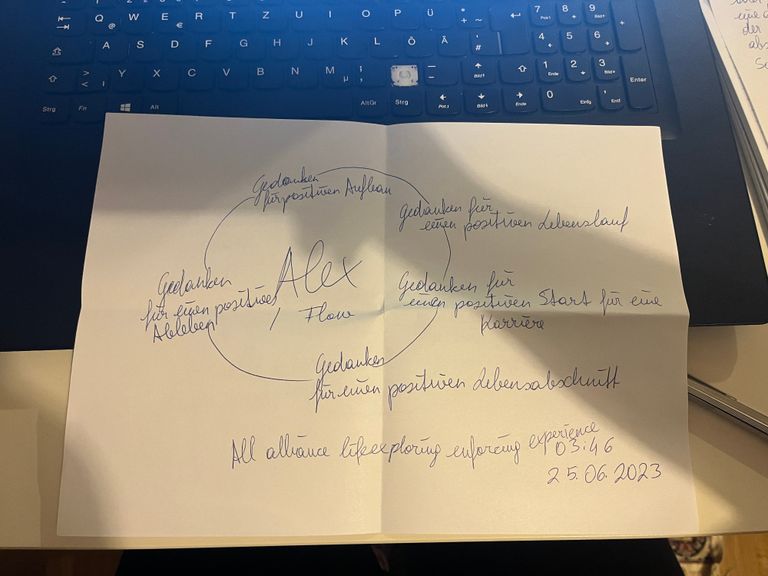 Q W E R T Z U I O P Ü
A S D F G H J K L Ö Ä
Y X C V B N M
Strg Fn Alt AltGr Strg
7 8 9
4 5 6
1 2 3
0 Enter
Gedanken
für positiven Aufbau
Gedanken für
einen positiven Lebenslauf
Gedanken
für einen positiven
Ableben
Alex
/ Flow
Gedanken für
einen positiven Start für eine
Karriere
Gedanken
für einen positiven Lebensabschnitt
All alliance lifeexploring enforcing experience
03:46
25.06.2023